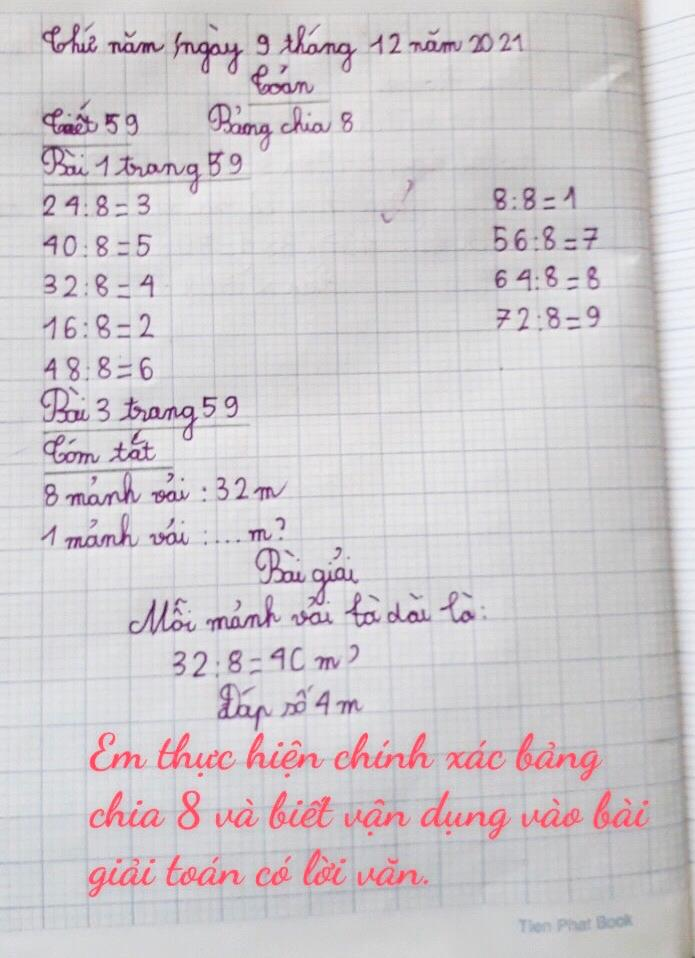 Thứ năm, ngày 9 tháng 12 năm 2021
Toán
Tiết 59 Bảng chia 8
Bài 1 trang 59
24:8=3 8:8=1
40:8=5 56:8=7
32:8=4 64:8=8
16:8=2 72:8=9
48:8=6
Bài 3 trang 59
Tóm tắt
8 mảnh vải : 32 m
1 mảnh vải : .... m?
Bài giải
Mỗi mảnh vải là dài là:
32:8=4( m)
Đáp số 4 m
Em thực hiện chính xác bảng
chia 8 và biết vận dụng vào bài
giải toán có lời văn.
Tien Phat Book